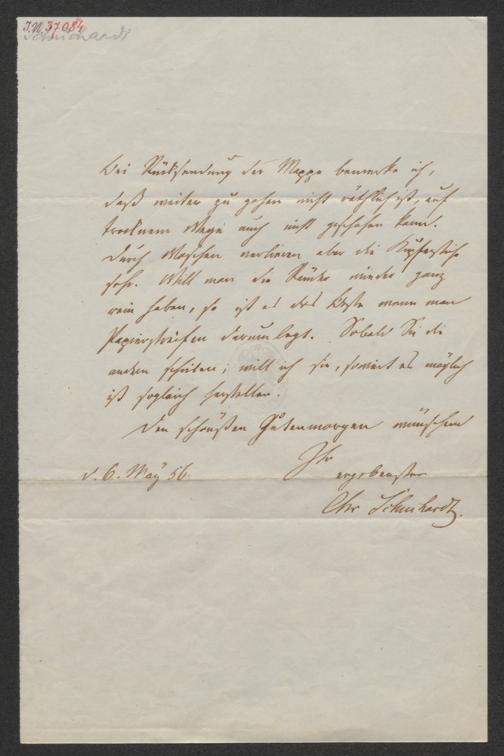 J.N. 37.084
Schuchardt
Bei Rücksendung der Mappe bemerke ich,
daß weiter zu gehen nicht räthlich ist, auf
trocknem Wege auch nicht geschehen kann.
Durch Waschen verlieren aber die Kupferstiche
sehr. Will man die Ränder wieder ganz
rein haben, so ist es das Beste wenn man
Papierstreifen darum legt. Sobald Sie die
andern schicken, will ich sie, soweit es möglich
ist sogleich herstellen.
Den schönsten Gutenmorgen wünschend
Ihr
d. 6. May 56.
ergebenster
Chr Schuchardt.